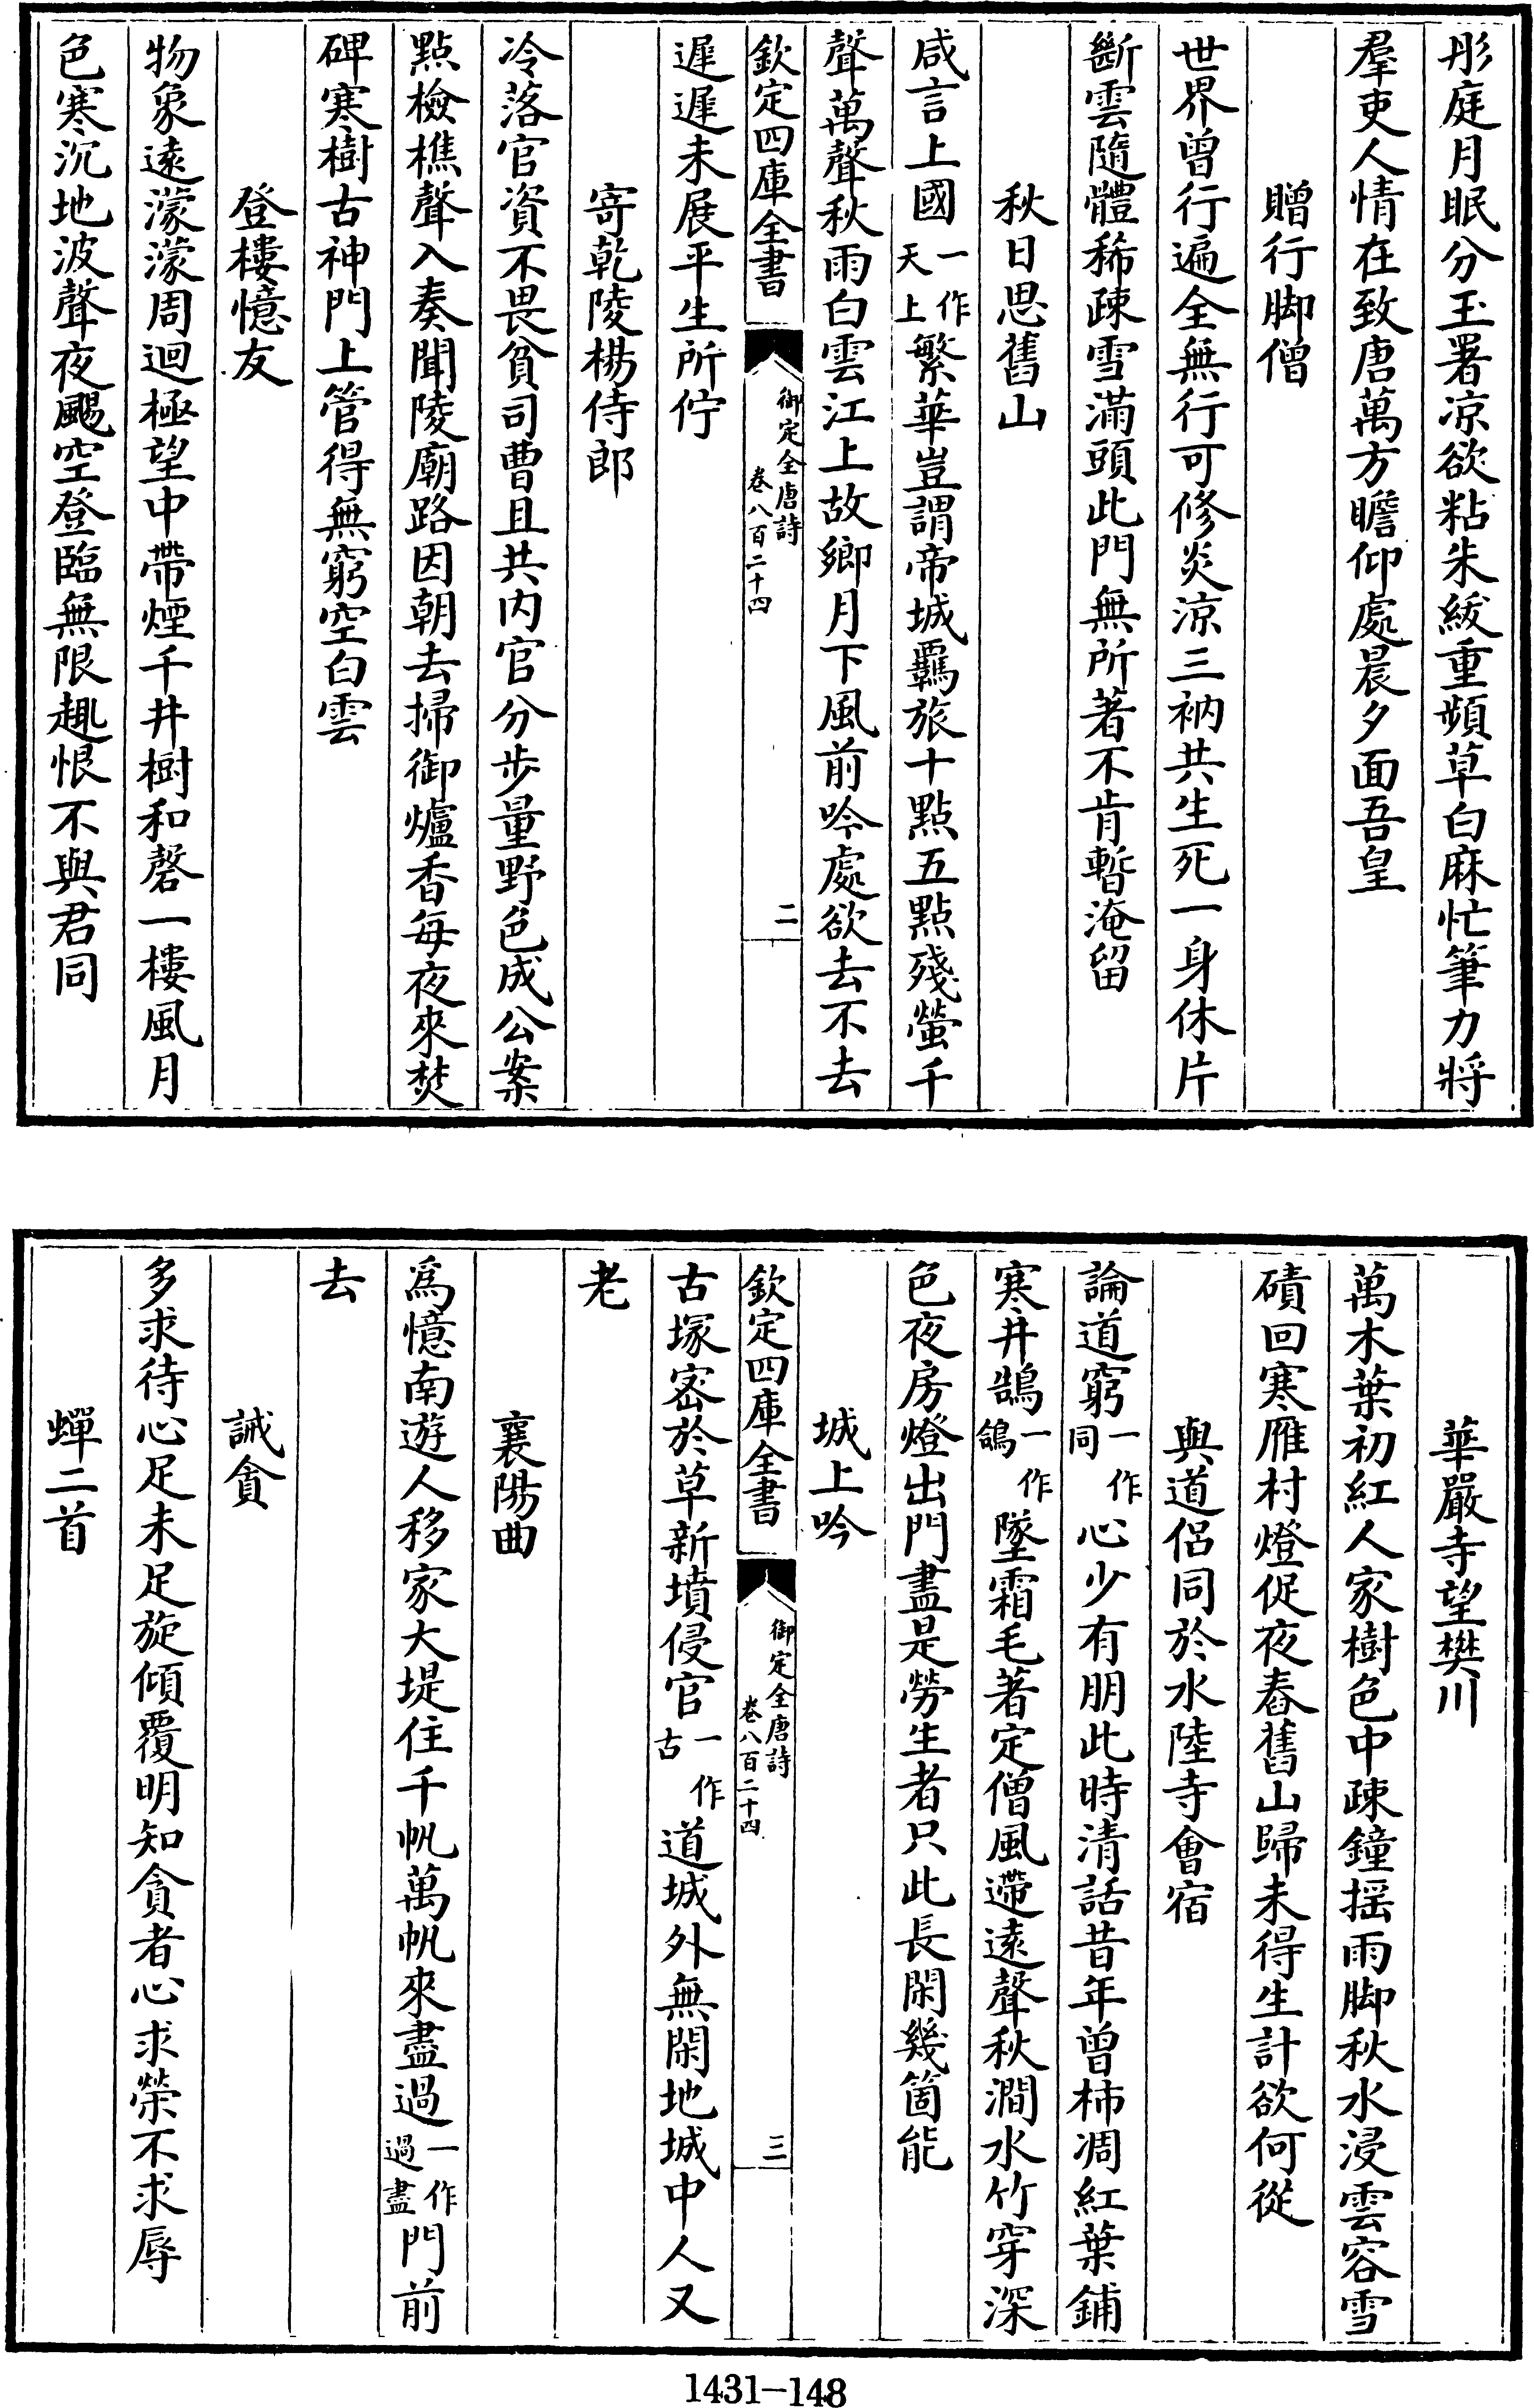 彤庭月眠分玉署凉欲粘朱紱重頻草白麻忙筆力將
羣吏人情在致唐萬方瞻仰處晨夕面吾皇
贈行脚僧
世界曾行遍全無行可修炎凉三衲共生死一身休片
斷雲隨體稀疎雪滿頭此門無所著不肯暫淹留
秋日思舊山
咸言上國一作天上繁華豈謂帝城羈旅十點五點殘螢千
聲萬聲秋雨白雲江上故鄉月下風前吟處欲去不去
欽定四庫全書 御定全唐詩 卷八百二十四 二
遲遲未展平生所佇
寄乾陵楊侍郎
冷落官資不畏貧司曹且共内官分步量野色成公案
點檢樵聲入奏聞陵廟路因朝去掃御爐香每夜來焚
碑寒樹古神門上管得無窮空白雲
登樓憶友
物象遠濛濛周迴極望中帶煙千井樹和磬一樓風月
色寒沉地波聲夜颺空登臨無限趣恨不與君同
華嚴寺望樊川
萬木葉初紅人家樹色中疎鐘摇雨脚秋水浸雲容雪
磧回寒雁村燈促夜舂舊山歸未得生計欲何從
與道侣同於水陸寺會宿
論道窮一作同心少有朋此時清話昔年曾柿凋紅葉鋪
寒井鵠一作鶴墜霜毛著定僧風遰遠聲秋澗水竹穿深
色夜房燈出門盡是勞生者只此長閑幾箇能
城上吟
欽定四庫全書 御定全唐詩 卷八百二十四 三
古塚密於草新墳侵官一作古道城外無閑地城中人又
老
襄陽曲
爲憶南遊人移家大堤住千帆萬帆來盡過一作過盡門前
去
誡貪
多求待心足未足旋傾覆明知貪者心求榮不求辱
蟬二首
1431-148